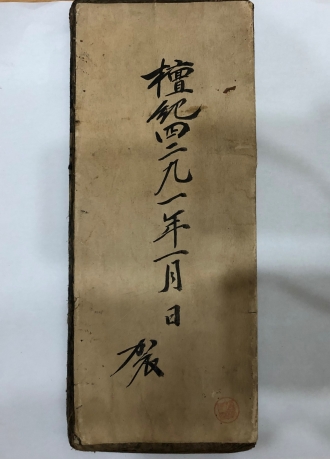 檀紀四二九一年一月 日